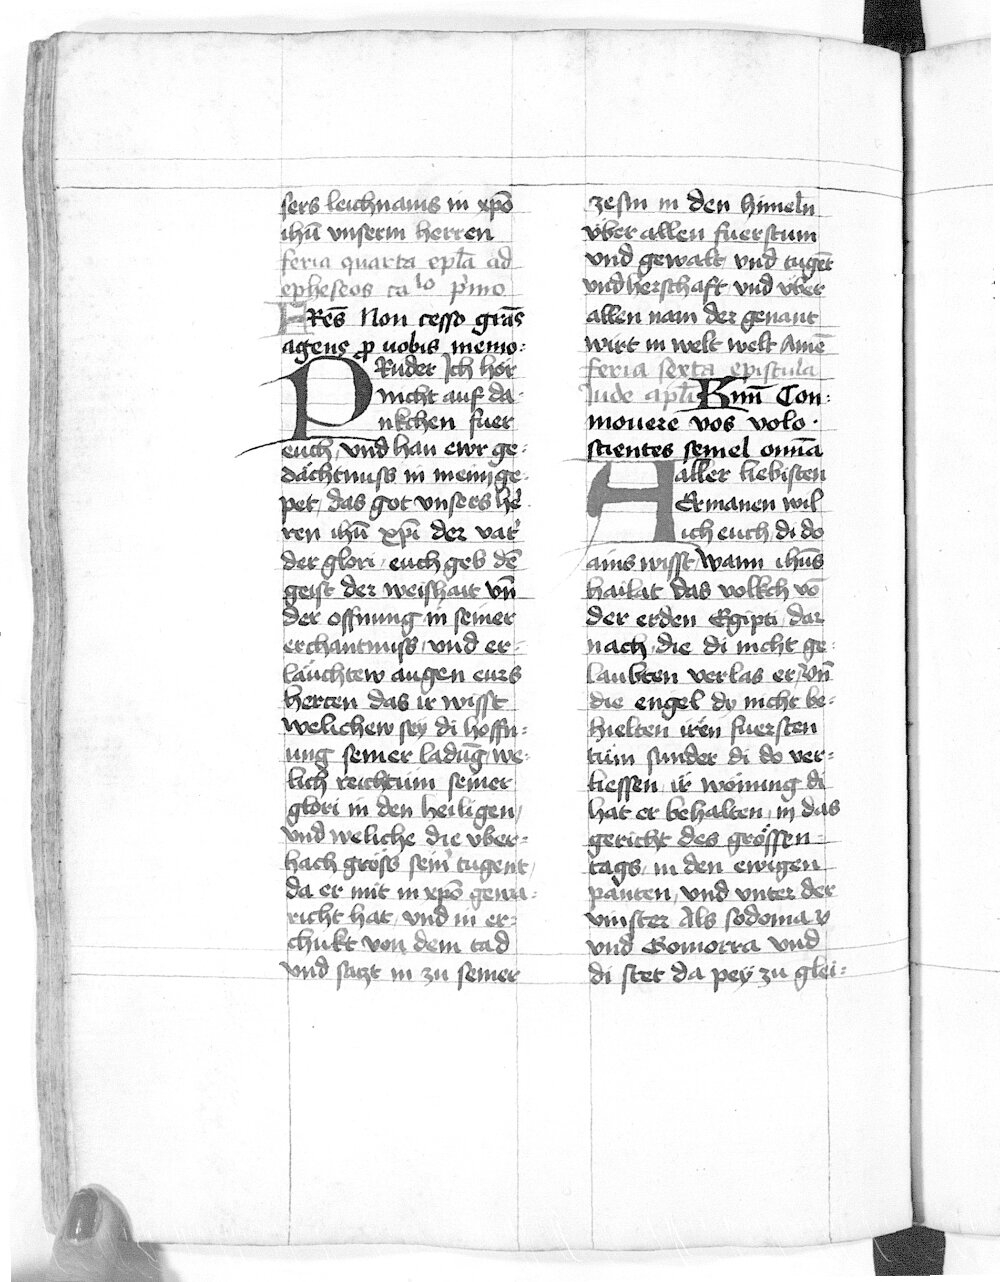 sers leichnams in xpō
ihū vnserm herren
feria quarta epl̄a ad
epheseos ca lo pͥmo
FRēs Non cesso grās
agens ꝓ uobis memo:
PRuder Ich hör
nicht auf da-
nkchen fuer
euch, vnd han ewr ge-
dächtnuss in meim ge-
pet, das got vnsers he-
ren ihū xpī der vatʼ
der glori, euch geb dē
geist der weishait vn̄
der offnung in seiner
erchantnuss, vnd er-
läuchtew augen eurs
herten das ir wisst
welichew sey di hoffn-
ung seiner ladūg we-
lich reichtum seiner
glori in den heiligen,
vnd weliche die vber-
hach gröss seinʼ tugent,
da er mit in xpō gewu-
richt hat, vnd in er-
chukt von dem tad
vnd saczt in zu seiner
zesm in den himeln
vber allen fuerstum
vnd gewalt vnd tugēt
vnd herschaft vnd vber
allen nam der genant
wirt in welt welt Amē
feria sexta epistula
Iude apl̄i Krm̄ Con-
mouere vos volo.
scientes semel om̄ia
Aaller liebisten
Ermanen wil
ich euch, di do
ains wisst, wann ihūs
hailat das volkch vō
der erden Egipti, dar
nach, die di nicht ge-
laubten verlas er, vn̄
die engel dy nicht be-
hielten iren fuersten
tum sunder di do ver-
liessen, ir wonung di
hat er behalten, in das
gericht des grössen
tags, in den ewigen
panten, vnd vnter der
vinster Als sodoma
vnd Gomorra vnd
di stet da pey zu glei-